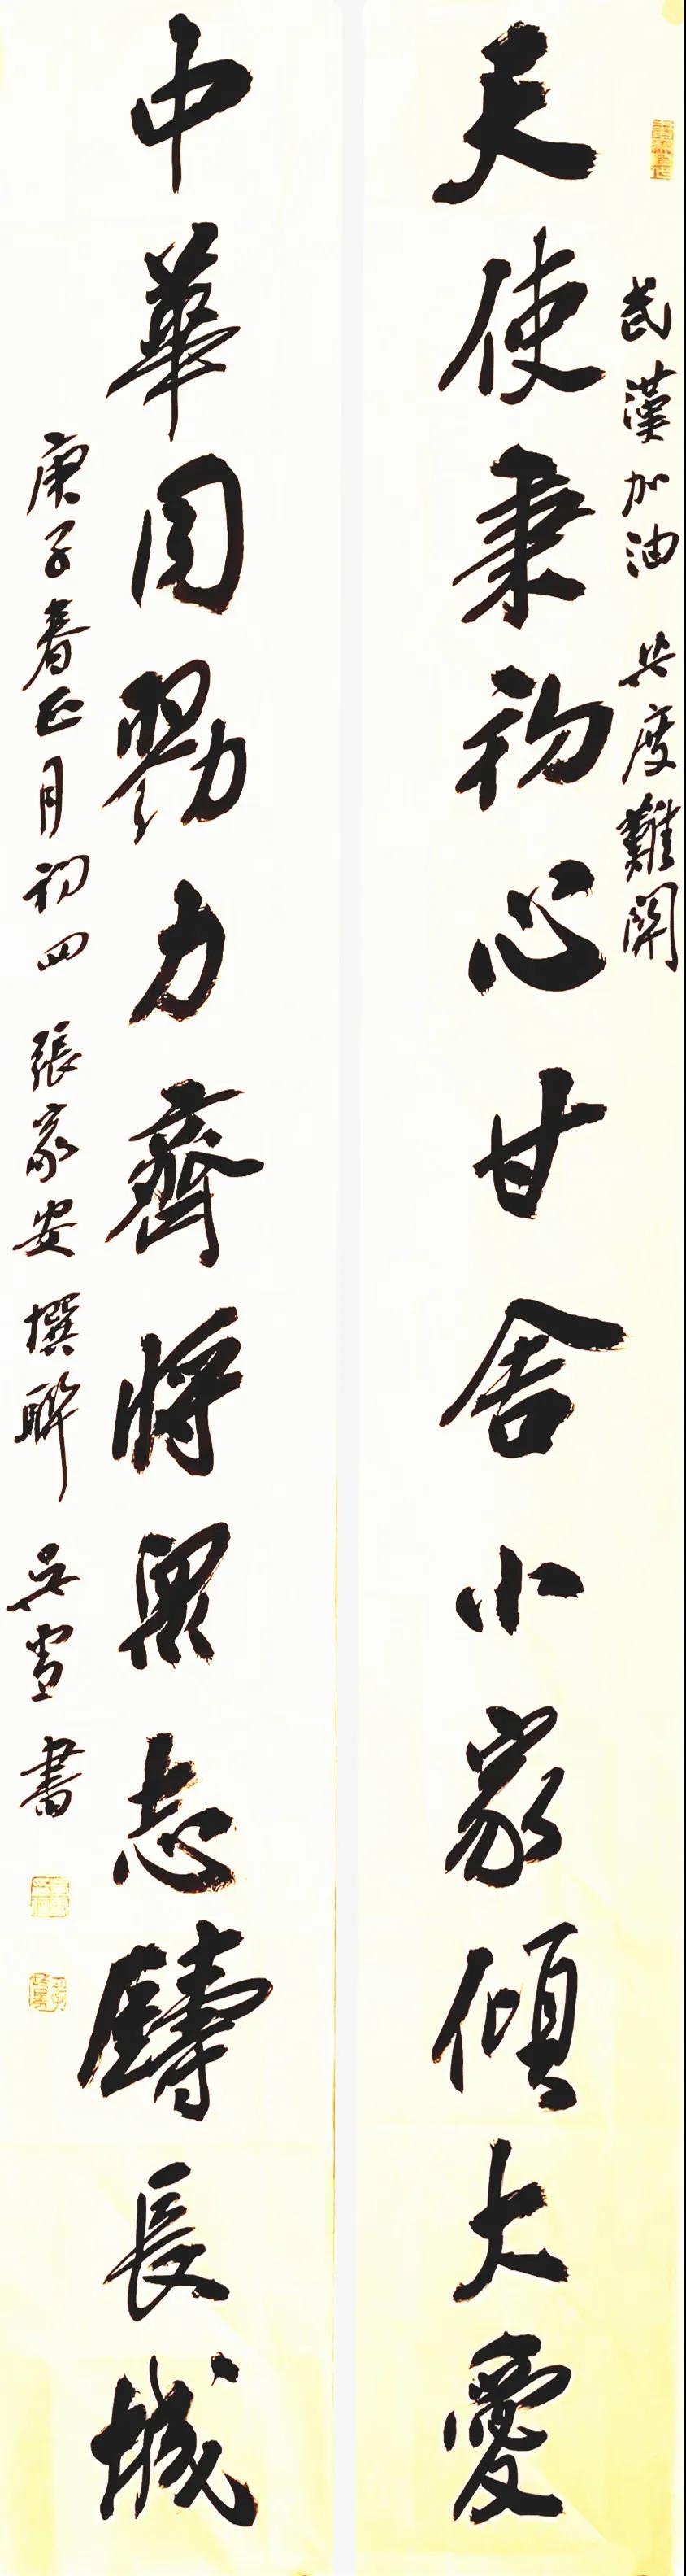 武漢加油 共度難關
天使秉初心甘舍小家傾大愛
中華同勠力齊將眾志鑄長城
庚子春正月初四 張家安 撰聯 吳雪書